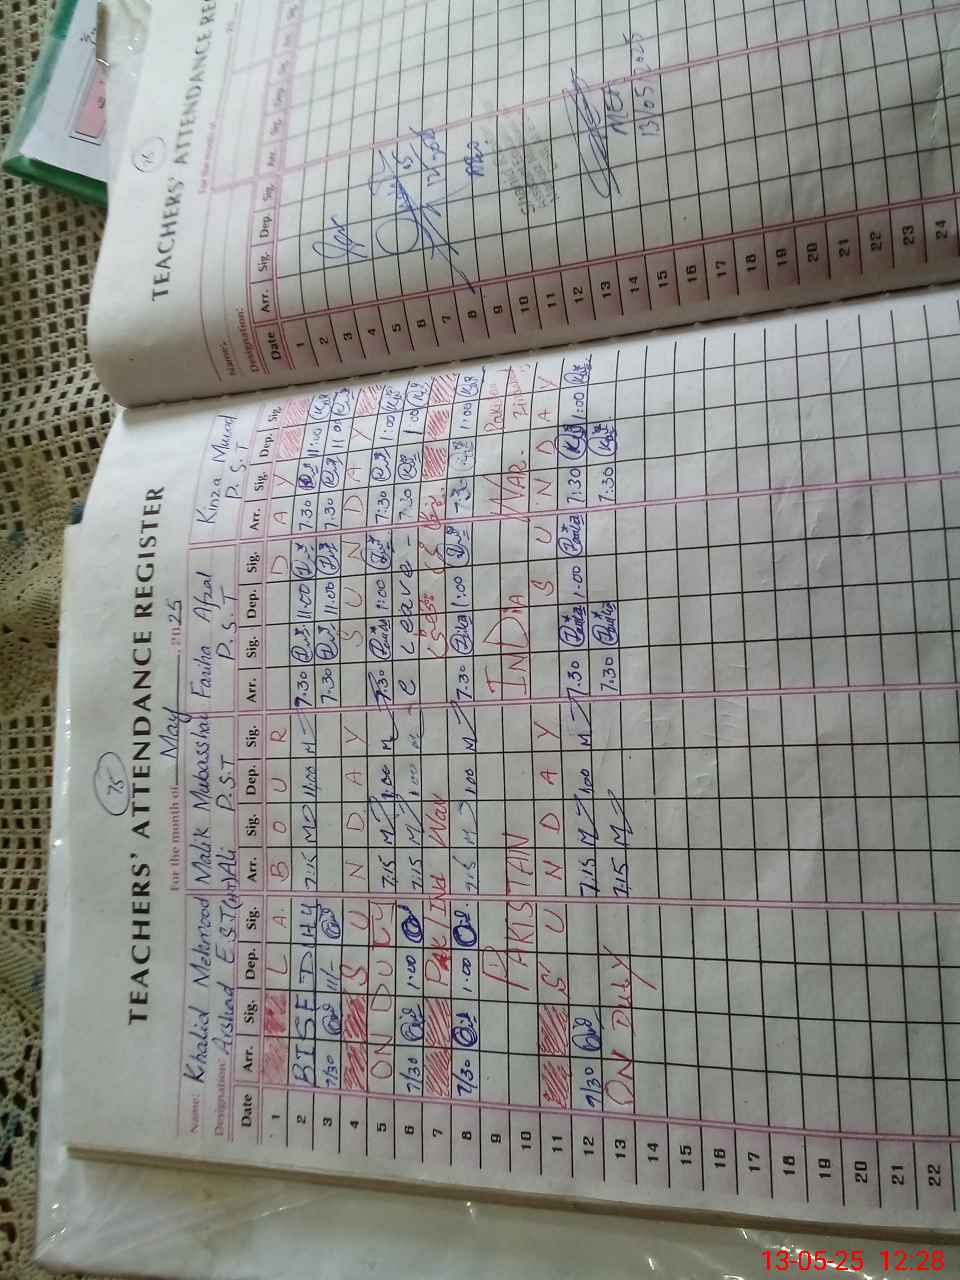 75
TEACHERS' ATTENDANCE REGISTER
For the month of May 2025
Name: Khalid Mehmood Malik Mubasshar Fariha Afzal Kinza Murad
Designation: Arshad E.S.T Ali P.S.T P.S.T P.S.T
Date Arr. Sig. Dep. Sig. Arr. Sig. Dep. Sig. Arr. Sig. Dep. Sig. Arr. Sig. Dep. Sig.
1 L A B O U R D A Y
2 BISE DIHY 7:15 M 11:00 M 7:30 11:00 7:30 11:00
3 7/30 11/- 7:30 11:00 7:30 11:00
4 S U N D A Y S U N D A Y
5 ON DUTY 7:15 M 1:00 M 7:30 1:00 7:30 1:00
6 7/30 1:00 7:15 M 1:00 M Leave 7:30 1:00
7 PAK/Ind War
8 7/30 1:00 7:15 M 1:00 M 7:30 1:00 7:30 1:00
9
10 PAKISTAN INDIA WAR.
11 S U N D A Y S U N D A Y
12 7/30 7:15 M 1:00 M 7:30 1:00 7:30 1:00
13 ON Duty 7:15 M 7:30 7:30
14
15
16
17
18
19
20
21
22
TEACHERS' ATTENDANCE RE
For the month of
Name:
Designation:
Date Arr. Sig. Dep. Sig. Arr. Sig. Dep. Sig.
1
2
3
4
5
6
7
8
9
10
11
12
13
14
15
16
17
18
19
20
21
22
23
24
13/05/2025
13-05-25 12:28